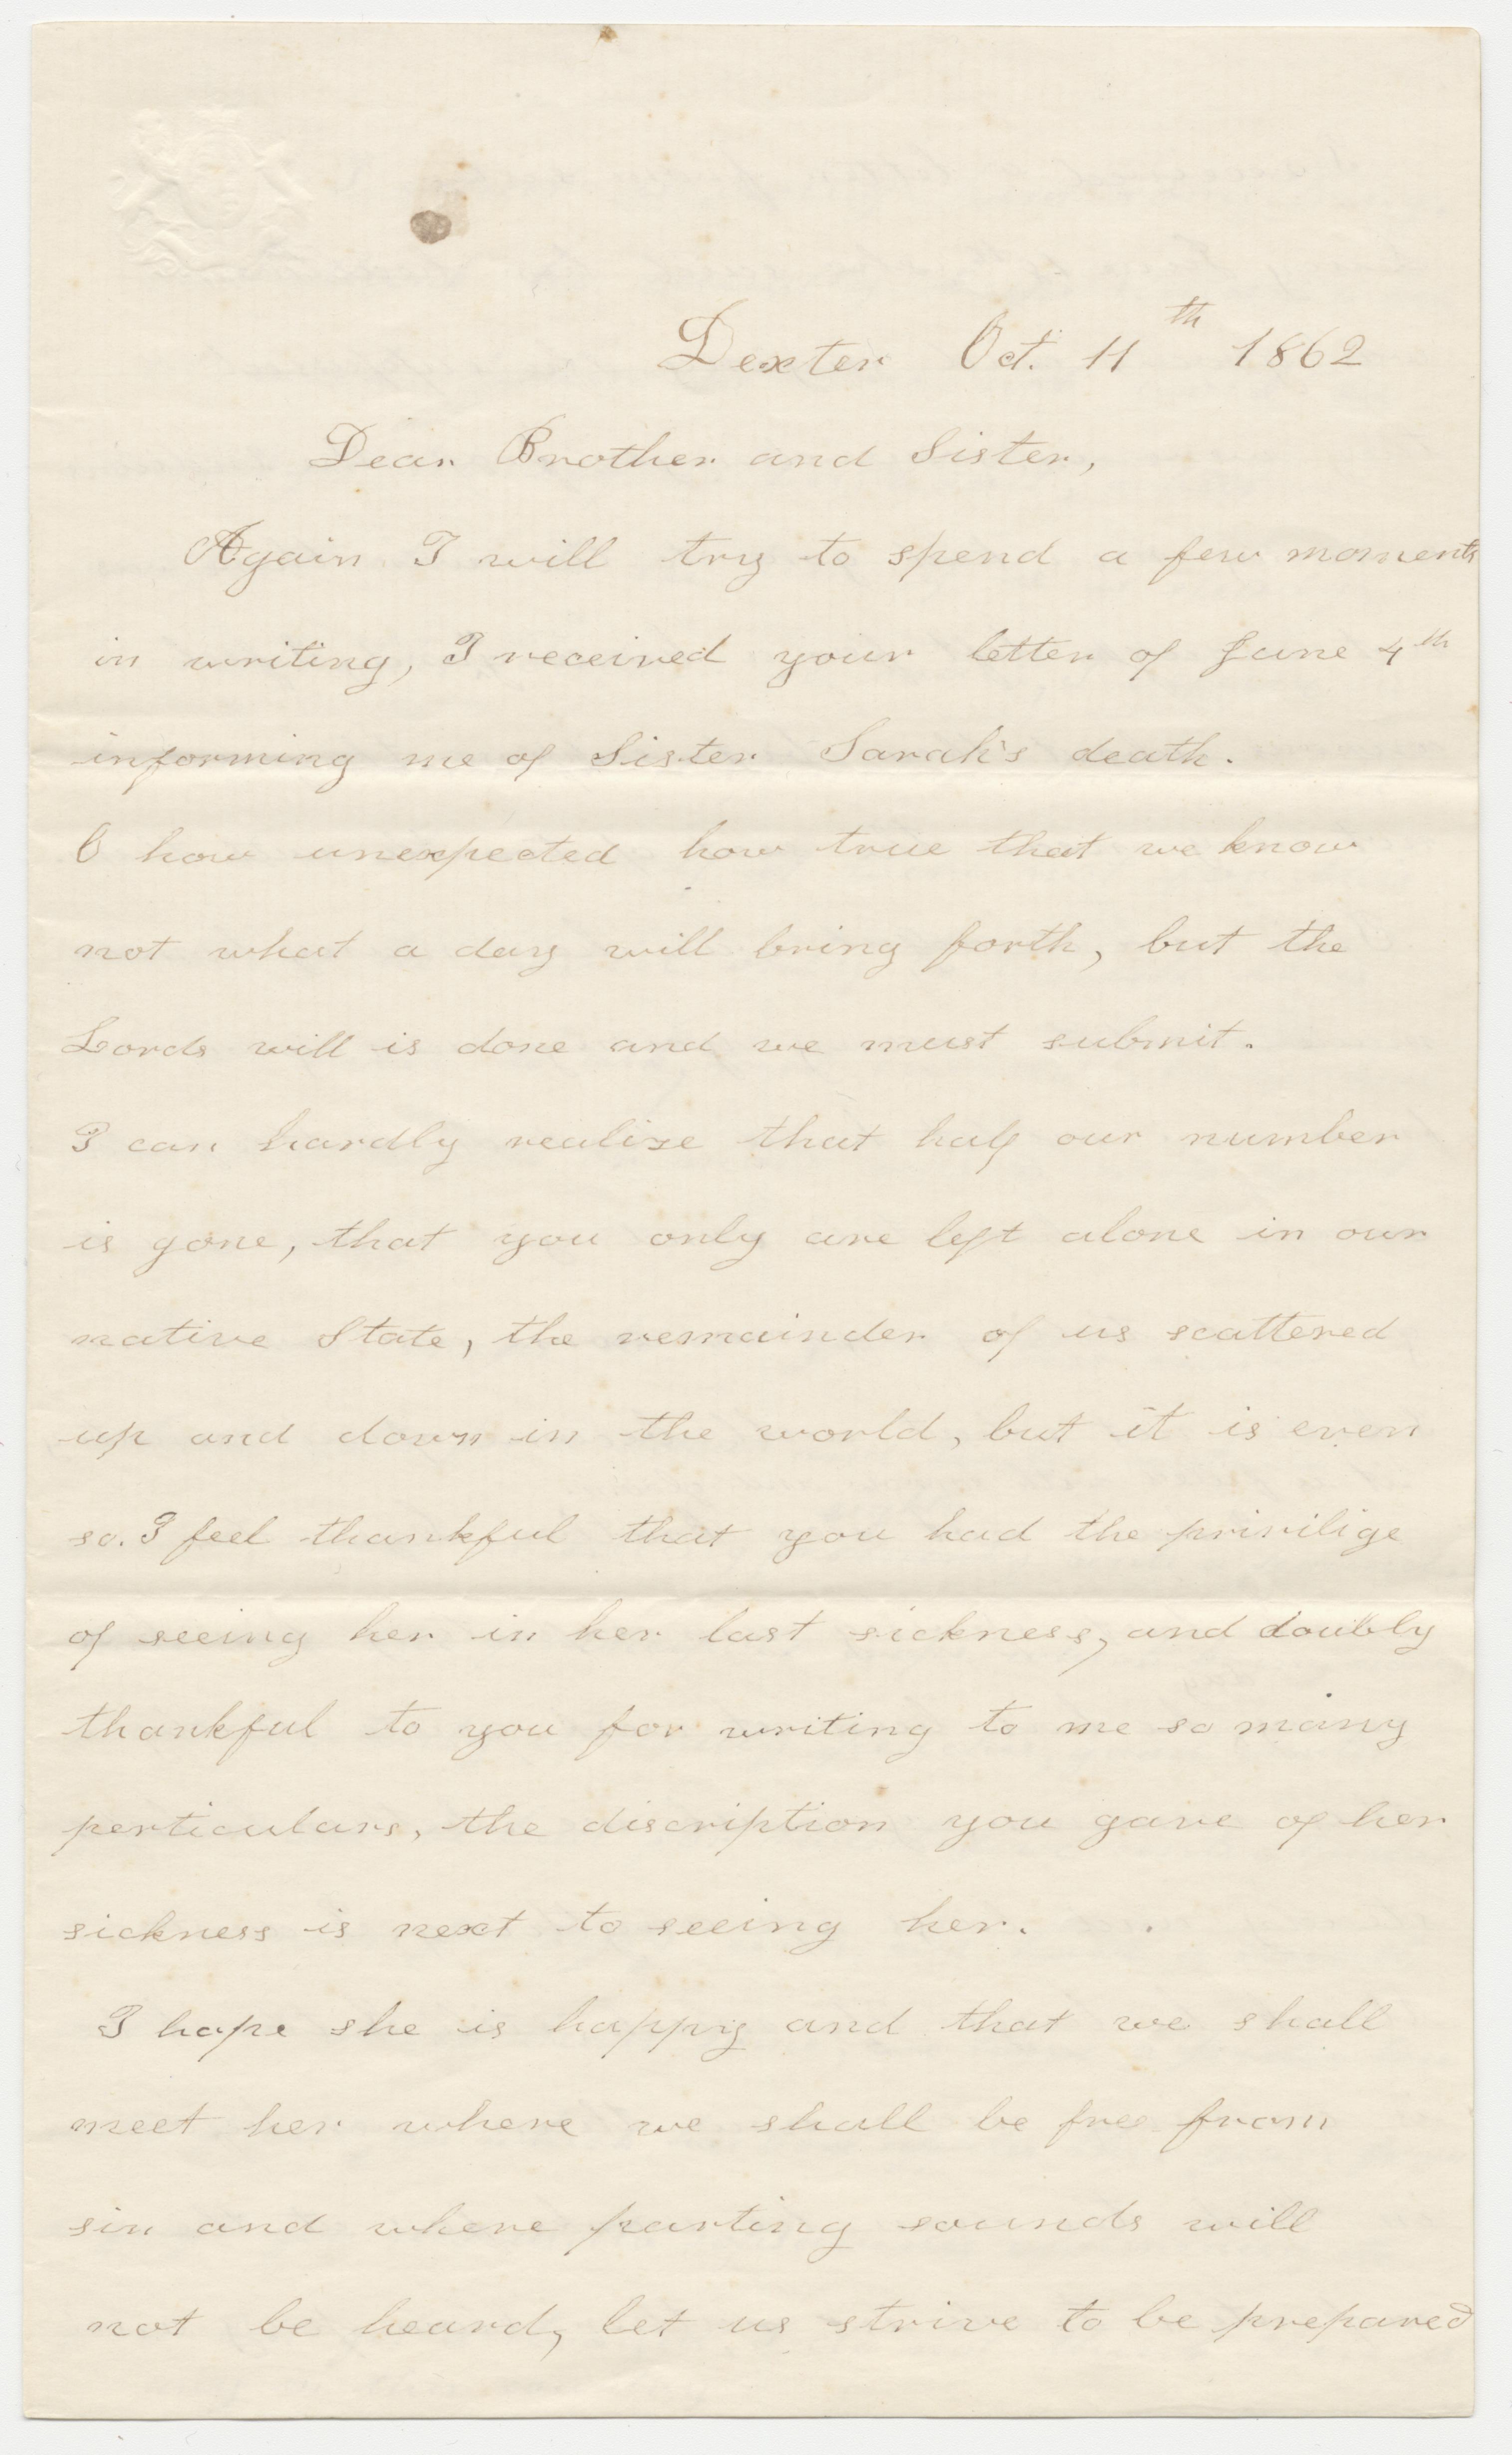 Dexter Oct. 11th 1862
Dear Brother and Sister,
Again I will try to spend a few moments
in writing, I received your letter of June 4th
informing me of Sister Sarah's death.
O how unexpected how true that we know
not what a day will bring forth, but the
Lords will is done and we must submit.
I can hardly realize that half our number
is gone, that you only are left alone in our
native State, the remainder of us scattered
up and down in the world, but it is even
so. I feel thankful that you had the privilige
of seeing her in her last sickness, and doubly
thankful to you for writing to me so many
perticulars, the discription you gave of her
sickness is next to seeing her.
I hope she is happy and that we shall
meet her where we shall be free from
sin and where parting sounds will
not be heard, let us strive to be prepared